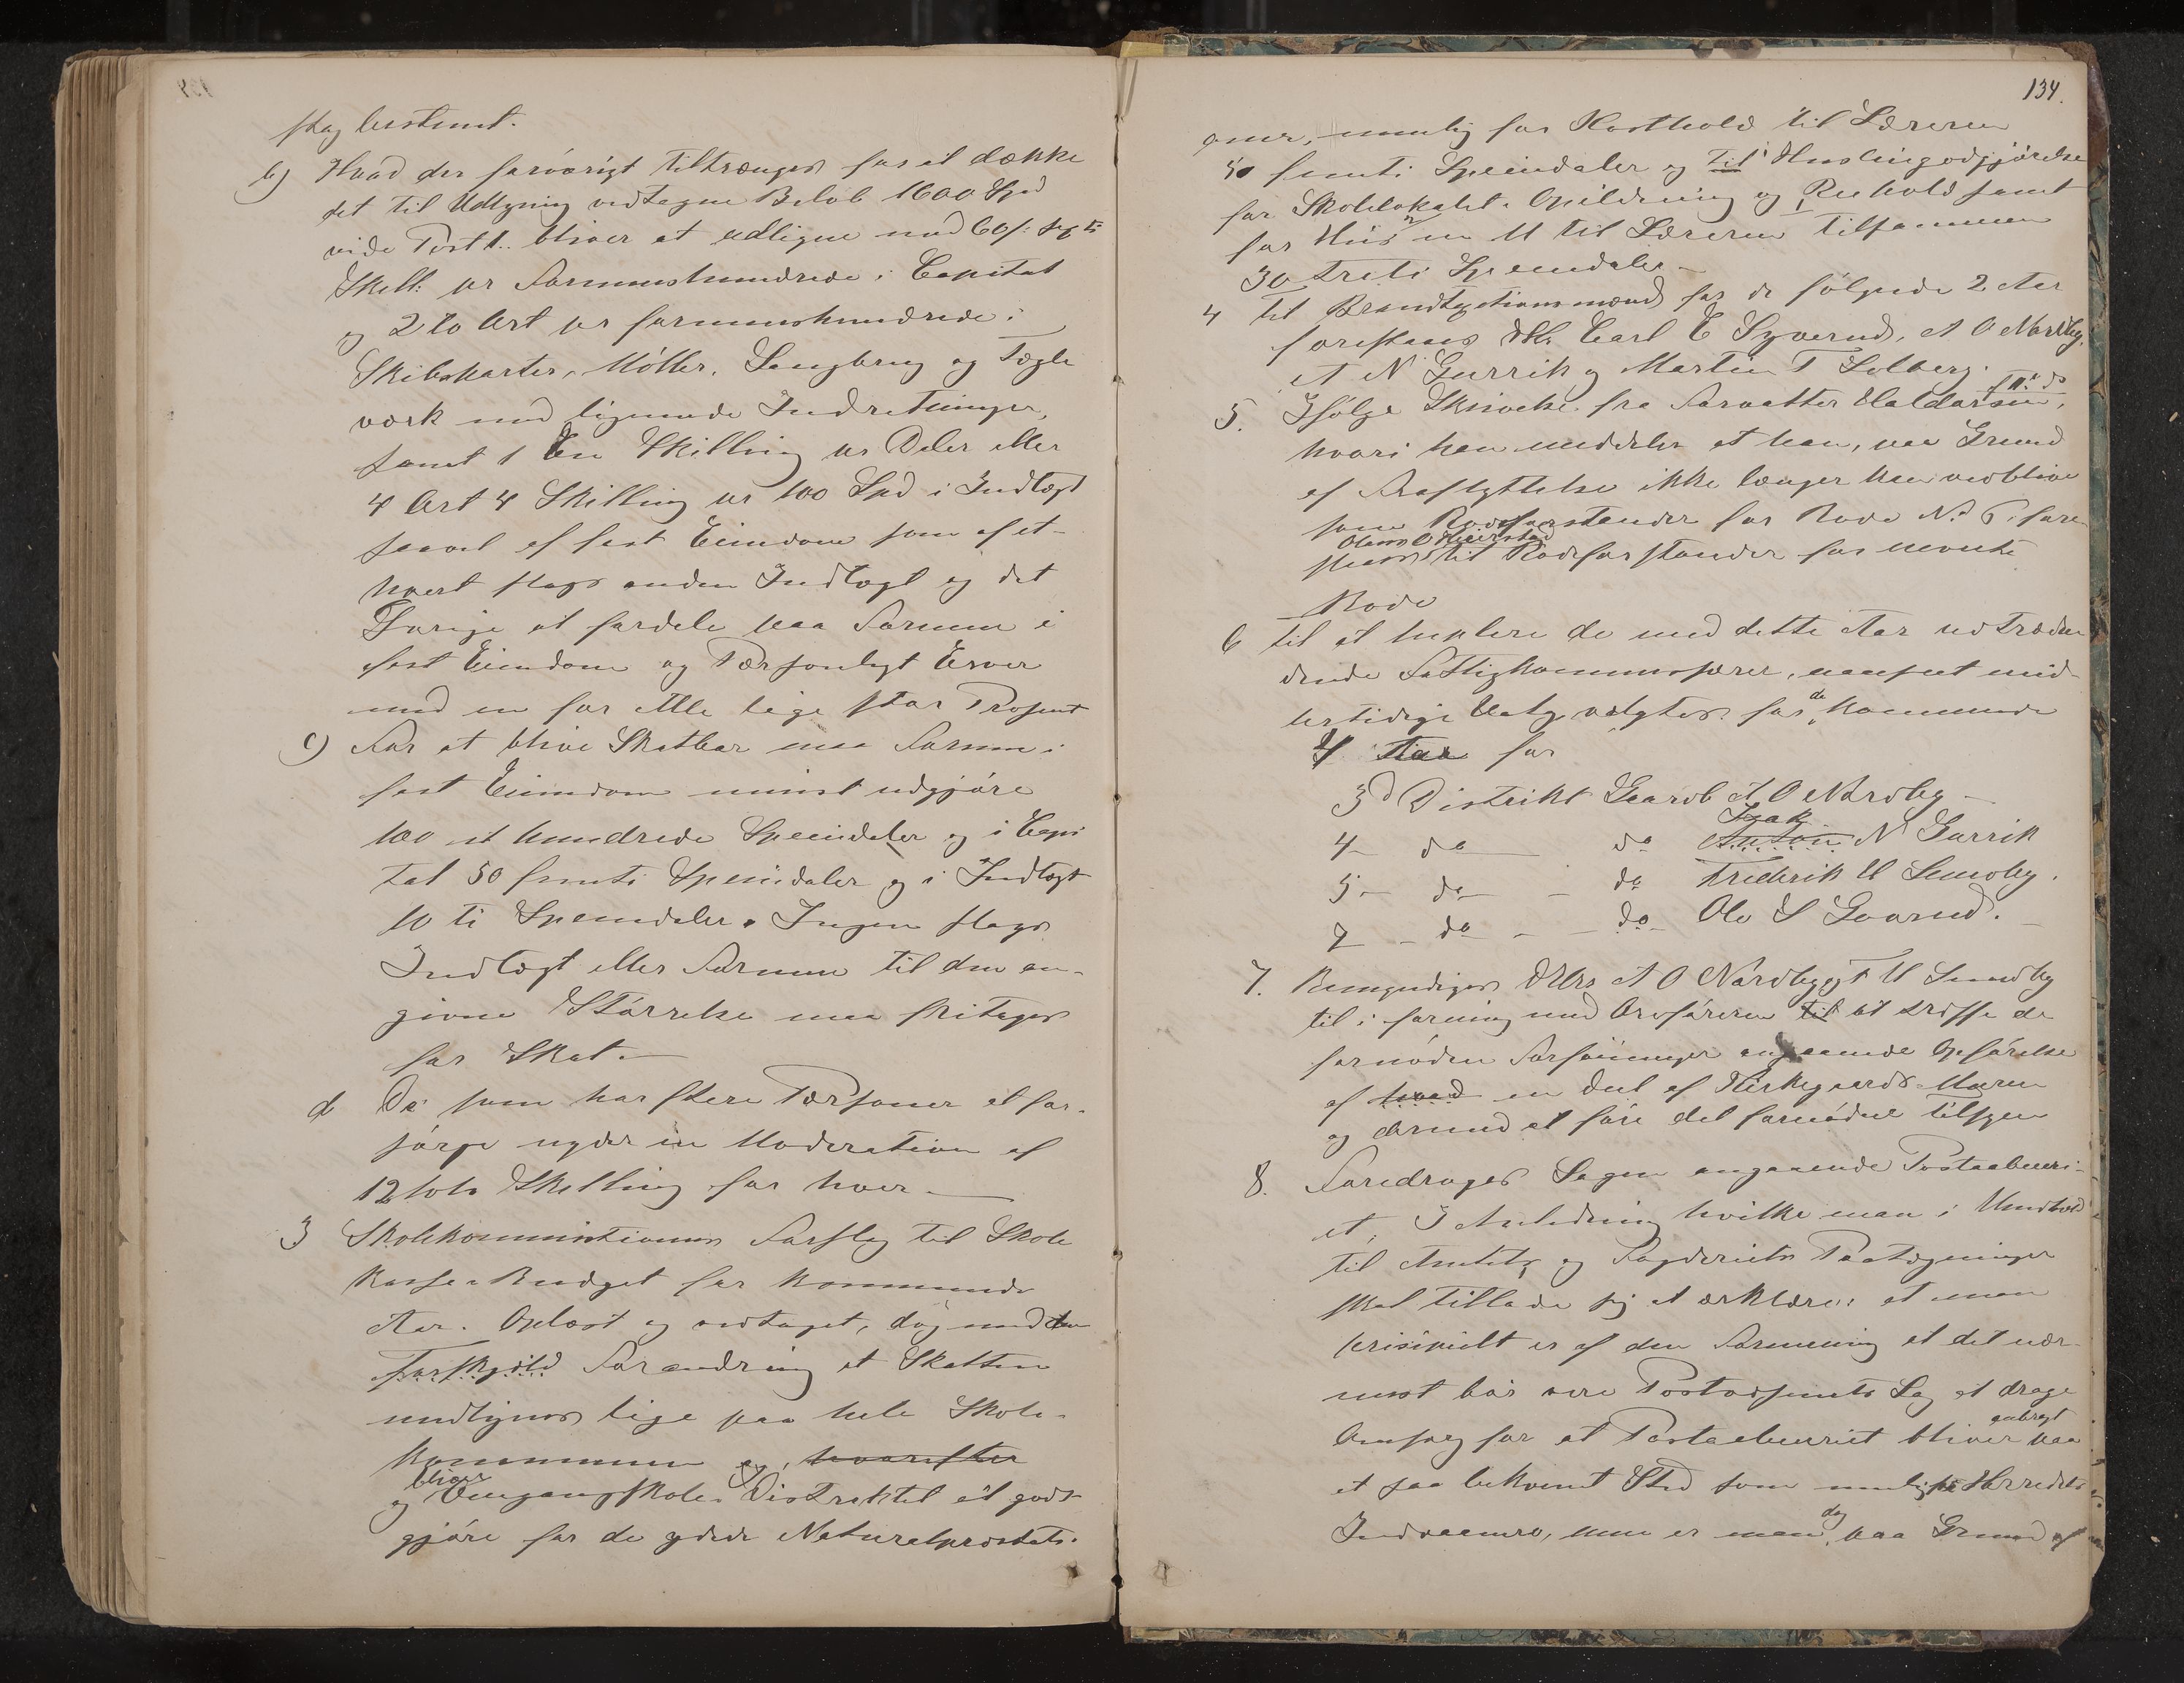 slag bestemt.
b) Hvad der forøvrigt tiltrænges for at dække
det til Udligning vedtagne Beløb 1600 Spd
vide Post 1. bliver at udligne med 60/: sexti
Skill: pr Formueshundrede i Capital
og 2 to Ort pr formueshundrede i
Skibsparter, Møller, Saugbrug og Tegle
værk med lignende Indretninger,
samt 1 En Skilling pr Daler eller
4 Ort 4 Skilling pr 100 Spd i Indtægt
saavel af fast Eiendom som af et-
hvert slags anden Indtægt og det
Øvrige at fordele paa Formue i
fast Eiendom og Personligt Erver
med en for Alle lige stor Prosent
c) For at blive Skatbar maa Formue i
fast Eiendom minst udgjøre
100 et hundrede Speciedaler og i Capi
tal 50 femti Speciedaler og i Indtægt
10 ti Speciedaler. Ingen slags
Indtægt eller Formue til den an-
givne Størrelse maa fritages
for Skat.
d De som har flere Personer at for-
sørge nyder en Moderation af
12 tolv Skilling for hver
3 Skolekommistionens Forslag til Skole
kasse-Budget for kommende
Aar. Oplæst og vedtaget, dog med den
Forskjæld Forandring at Skatten
undlignes lige paa hele Skole-
kommunen og, hvorefter
bliver
og Omgangsskole-Distriktet at godt-
gjøre for de ydede Naturalpræstati-
134.
oner, nemlig for Kosthold til Læreren
50 femti Speciedaler og til Huslingodgjørelse
for Skolelokalet. Opildning og Renhold samt
for Huis til Læreren tilsammen
30 treti Speciedaler
4 til Brandtaxtionsmænd for de følgende 2 Aar
foreslaaes DHr. Carl E Syverud, A O Nordby,
A N Gurrik og Martin T Solberg.
5. Ifølge Skrivelse fra Forvalter Haldorsen,
hvori han meddeler at han, paa Grund
af Fraflyttelse ikke længer kan vedblive
som Rodeforstander for Rode No 6. fore
slaaes til Rodeforstander for nævnte
Rode
6 til at suplere de med dette Aar udtræden
dende Fattigkommisærer, uanseet mid-
lertidige Valg valgtes for de kommende
4 Aar for
3d Distrikt Gaarb A O Nordby
Isak
4 do do Anton N Gurrik
5 do do Frederik H Sundby.
7 do do Ole S Gaarud.
7. Bemyndiges DHrs A O Nordby og F H Sundby
til i forening med Ordføreren til at træffe de
fornødne Forføininger angaaende Opførelse
af hvad en Deel af Kirkegaards-Muren
og dermed at føre det fornødne tilsyn
8. Foredrages Sagen angaaende Postaabneri-
et, I Anledning hvilke man i Henhold
til Amtets og Fogderiets Paategninger
skal tillade sig at erklære: at man
prisipielt er af den Formening at det nær
mest bør være Postvæsenets Sag at drage
Omsorg for at Postaabneriet bliver anbragt paa
et saa bekvemt Sted som mulig for Herredets
Indvaanere, men er man dog paa Grund af